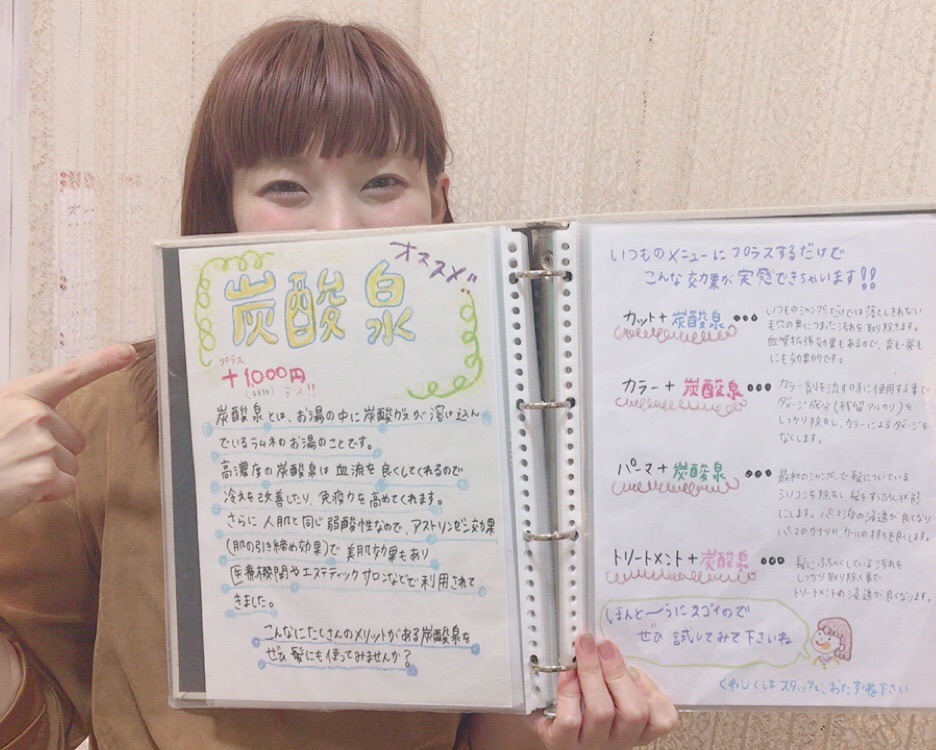 オススメ!!
炭酸泉
プラス
+1000円
(税抜)デス!!
炭酸泉とは、お湯の中に炭酸ガスが溶け込ん
でいるラムネのお湯のことです。
高濃度の炭酸泉は血流を良くしてくれるので
冷えを改善したり、免疫力を高めてくれます。
さらに人肌と同じ弱酸性なので、アストリンゼン効果
(肌の引き締め効果)で美肌効果もあり
医療機関やエステティックサロンなどで利用されて
きました。
こんなにたくさんのメリットがある炭酸泉を
ぜひ髪にも使ってみませんか?
いつものメニューにプラスするだけで
こんな効果が実感できちゃいます!!
カット+炭酸泉•••
いつものシャンプーだけでは落としきれない
毛穴の奥につまった汚れを取り除きます。
血管拡張効果もあるので、育毛・養毛
にも効果的です。
カラー+炭酸泉•••
カラー剤を流す時に使用する事で
ダメージ成分(残留アルカリ)を
しっかり除去し、カラーによるダメージを
なくします。
パーマ+炭酸泉•••
最初のシャンプーで髪についている
シリコンを除去し、髪をすっぴん状態
にします。パーマ液の浸透が良くなり
パーマのかかりや、カールの持ちを良くします。
トリートメント+炭酸泉•••
髪にふちゃくしている汚れを
しっかり取り除く事で
トリートメントの浸透が良くなります。
ほんと〜うにスゴイので
ぜひ 試してみて下さいね
くわしくはスタッフに、おたずね下さい